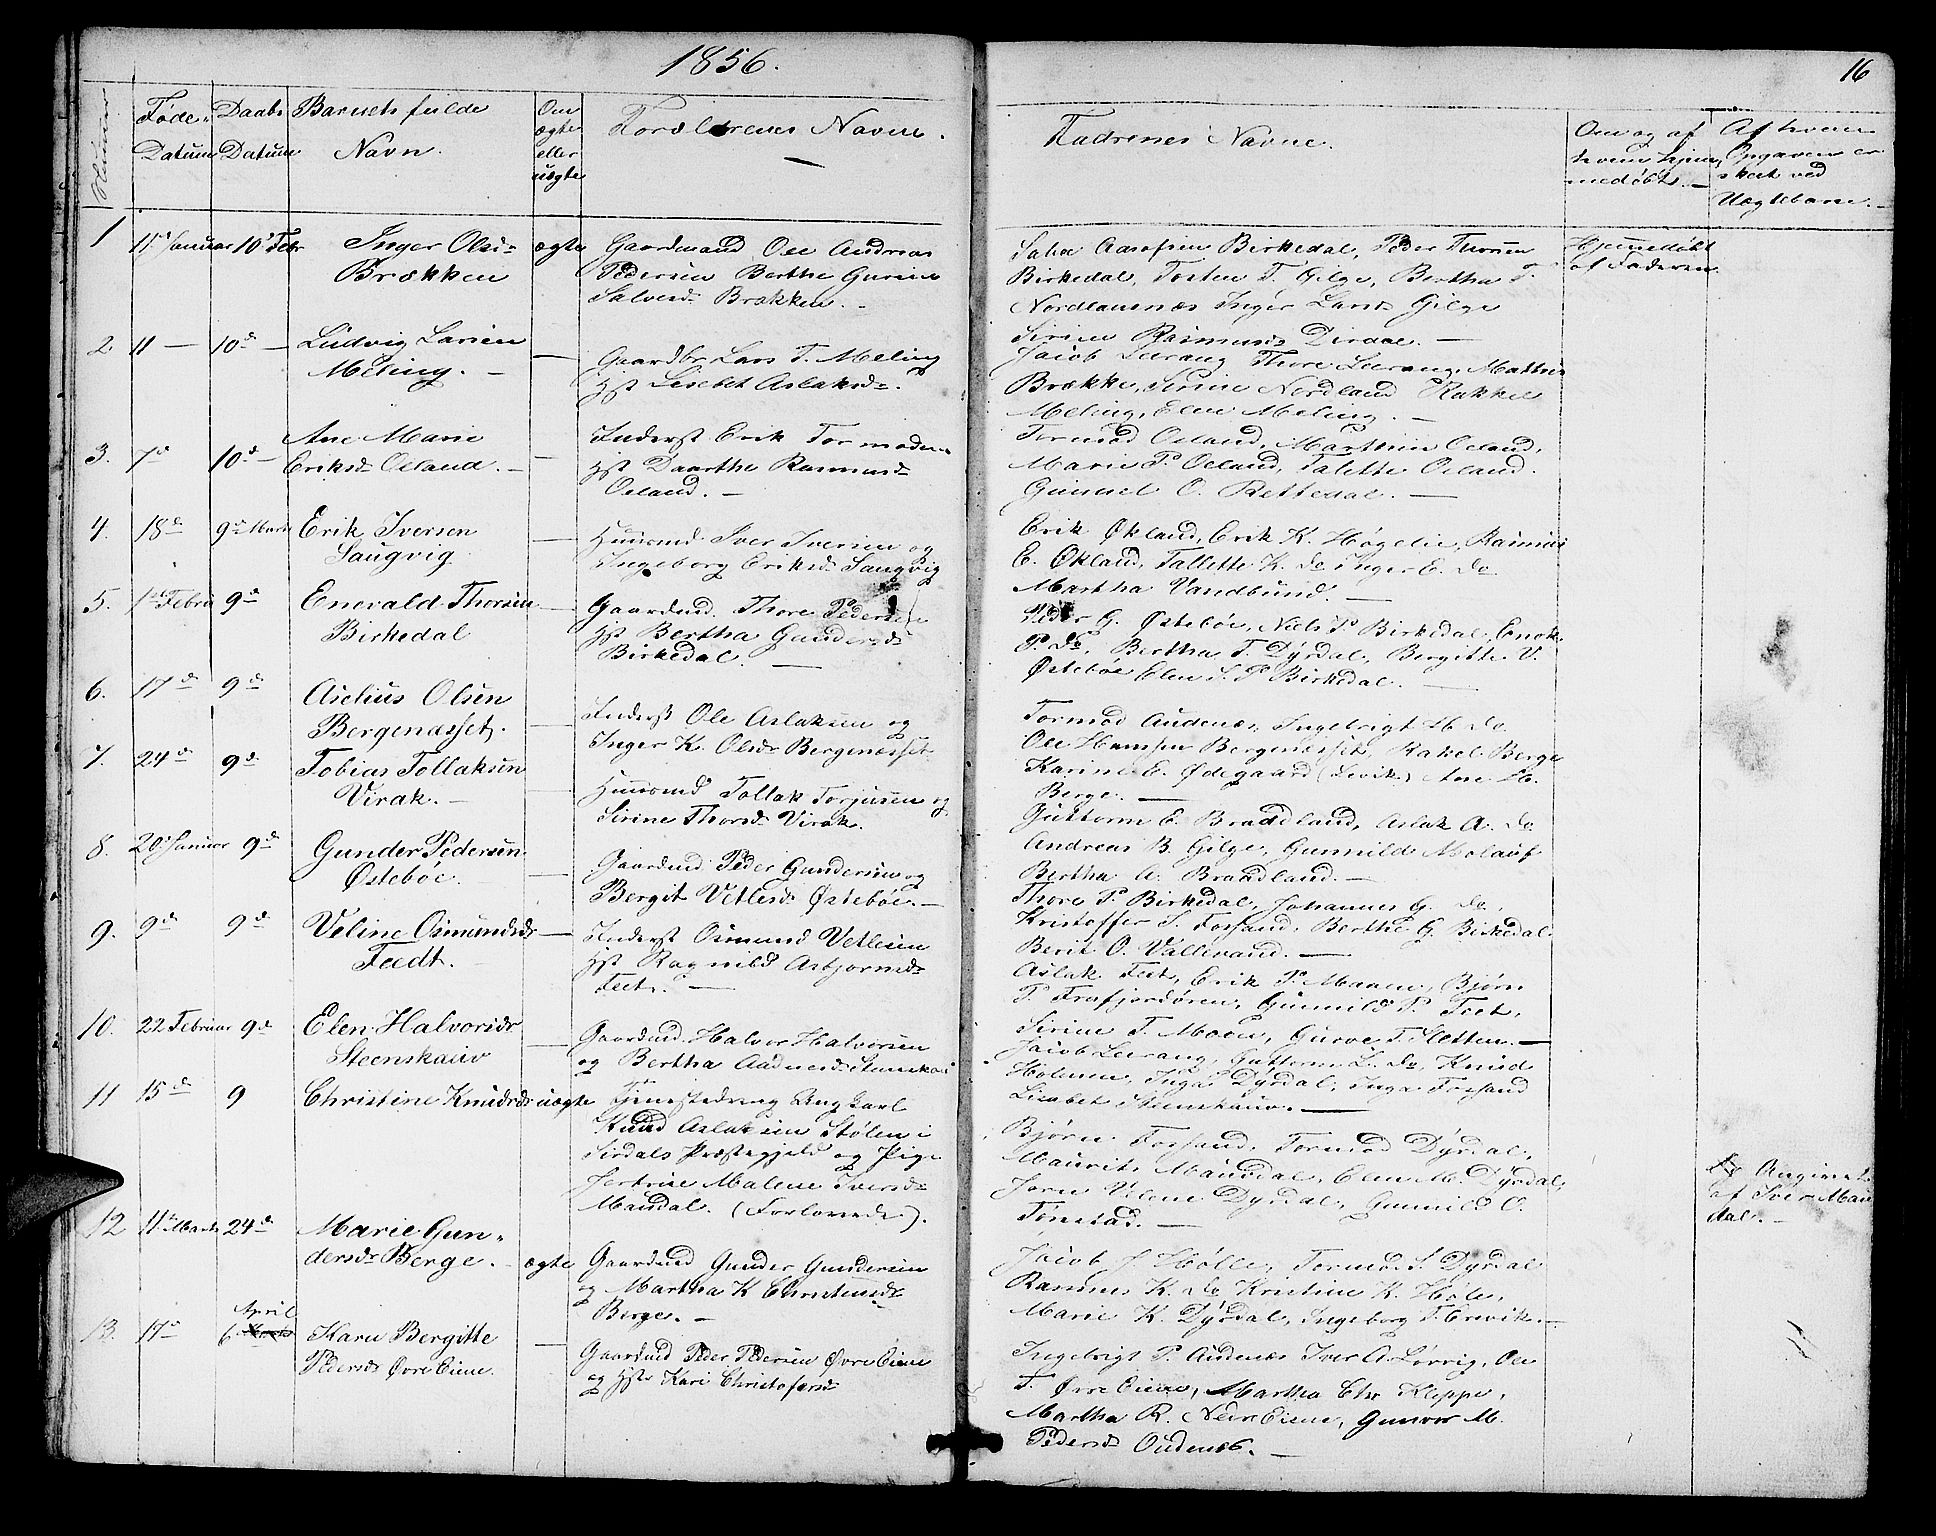 1856.
16
Numer
Føde-
Datum
Daabs
Datum
Barnets fulde
Navn.
Om
ægte
eller
uægte
Forældrenes Navne.
Fadrenes Navne.
Om og af
hvem hjem
medøbt.
Af hvem
Opgaven er
skeet ved
Uægtebarn.
1
11te Januar
10de Febr
Inger Olsd
Brækken
ægte
Gaardmand Ole Andreas
Pedersen Berthe Gurine
Salvesd Brækken.
Birkedal, Peder Thorsen
Birkedal, Torsten T. Gilge, Bertha T.
Nordlandsnæs Inger Larsd Gilge
Sirine Rasmusd Dirdal.
Hjemmedøbt
af Faderen.
2
11 —
10d —
Ludvig Larsen
Meling. —
—
Gaardbr Lars T. Meling
hst Lisebet Aslaksd.
Jacob Leerang Thore Leerang, Mathis
Brække, Serine Nordland Rakkel
Meling, Elen Meling. —
3.
7d
10d —
Ane Marie
Eriksd Oeland. —
—
Inderst Erik Tormodsen
hst Daarthe Rasmusd
Oeland. —
Tormod Oeland, Marthin Oeland,
Marie P. Oeland, Talette Oeland.
Gunnel O. Rettedal. —
4.
18d
9d Marts
Erik Iversen
Saugvig.
—
Huusmd Iver Iversen og
Ingeborg Eriksd Saugvig
Erik Økland, Erik K. Høgelie, Rasmus
E. Økland, Tallette K. do Inger E. do
Martha Vandbund. —
5.
1d Februar
9d
Enevald Thorsen
Birkedal
—
Gaardmd. Thore Pedersen
hst Bertha Gundersd
Birkedal. —
Peder G. Østebøe, Niels P. Birkedal, Enok
P. do, Bertha T. Dyrdal, Bergitte V.
Østebøe Elen S. P. Birkedal. —
6.
17d
9d
Aselius Olsen
Bergenasset.
—
Inderst Ole Aslaksen og
Inger K. Olsdr Bergenæsset.
Tormod Audenæs, Ingebrigt H. do
Ole Hansen Bergenæsset, Rakel Berge
Karine E. Ødegaard (Levik) Ane H.
Berge. —
7.
24d
9d
Tobias Tollaksen
Virak. —
—
Huusmd Tollak Torjusen og
Sirine Thorsd Virak.
Guttorm E. Braadland, Aslak A. do
Andreas B. Gilge, Gunnild Molauf
Bertha A. Braadland. —
8.
20d Januar
9d
Gunder Pedersen
Østebøe.
—
Gaardmd Peder Gundersen og
Bergit Vetlesd Østebøe. —
Thore P. Birkedal, Johannes G. do,
Kristoffer S. Forsand, Berthe G. Birkedal.
Berit O. Vallevand. —
9.
9d
9d
Veline Osmundsdr
Feedt. —
—
Inderst Osmund Vetlesen
hst Ragnild Asbjornsd
Feet. —
Aslak Feet, Erik P. Maan, Bjørn
P. Frafjordøren, Gunnild P. Fret,
Sirine T. Moen, Gurve T. Hetten. —
10.
22 Februar
9d
Elen Halvorsdr
Steenskauv
—
Gaardmd Halvor Halvorsen
og Bertha Aadnesd Steenskauv
Jacob Leerang, Guttorm L. do, Knud
Holmen, Inga Dyrdal, Inga Forsand
Lisabet Steenskauv. —
11
15d
9
Christine Knudsdr
uægte
Tjenestedreng Ungkarl
Knud Aslaksen Stølen i
Sirdals Præstegjeld og Pige
Jertrine Malene Iversd
Maudal. (Forlovede).
Bjørn Forsand, Tormod Dyrdal,
Maurits Maudal, Elen M. Dyrdal,
Jorn Velene Dyrdal, Gunnild O.
Tønstad. —
Angivet
af Iver Mau
dal. —
12
11d Marts
24d
Marie Gun-
dersdr Berge. —
ægte
Gaardmd Gunder Gundersen
og Martha K Christensdr
Berge. —
Jacob J Hølle, Tormod S. Dyrdal
Rasmus K. do Kristine K. Hole,
Marie K. Dyrdal, Ingeborg T. Erevik. —
13.
17d
April
6 Marts
Karn Bergitte
Pedersd Øvre Eiene.
—
Gaardmd Peder Pedersen Øvre Eiene
og hst Kari Christofersd
Ingebrigt P. Audenæs Iver A. Lørvig, Ole
T. Øvre Eiene, Martha Chr Kleppe,
Martha R. Nedre Eiene, Gunvor M.
Pedersd Oudenæs. —